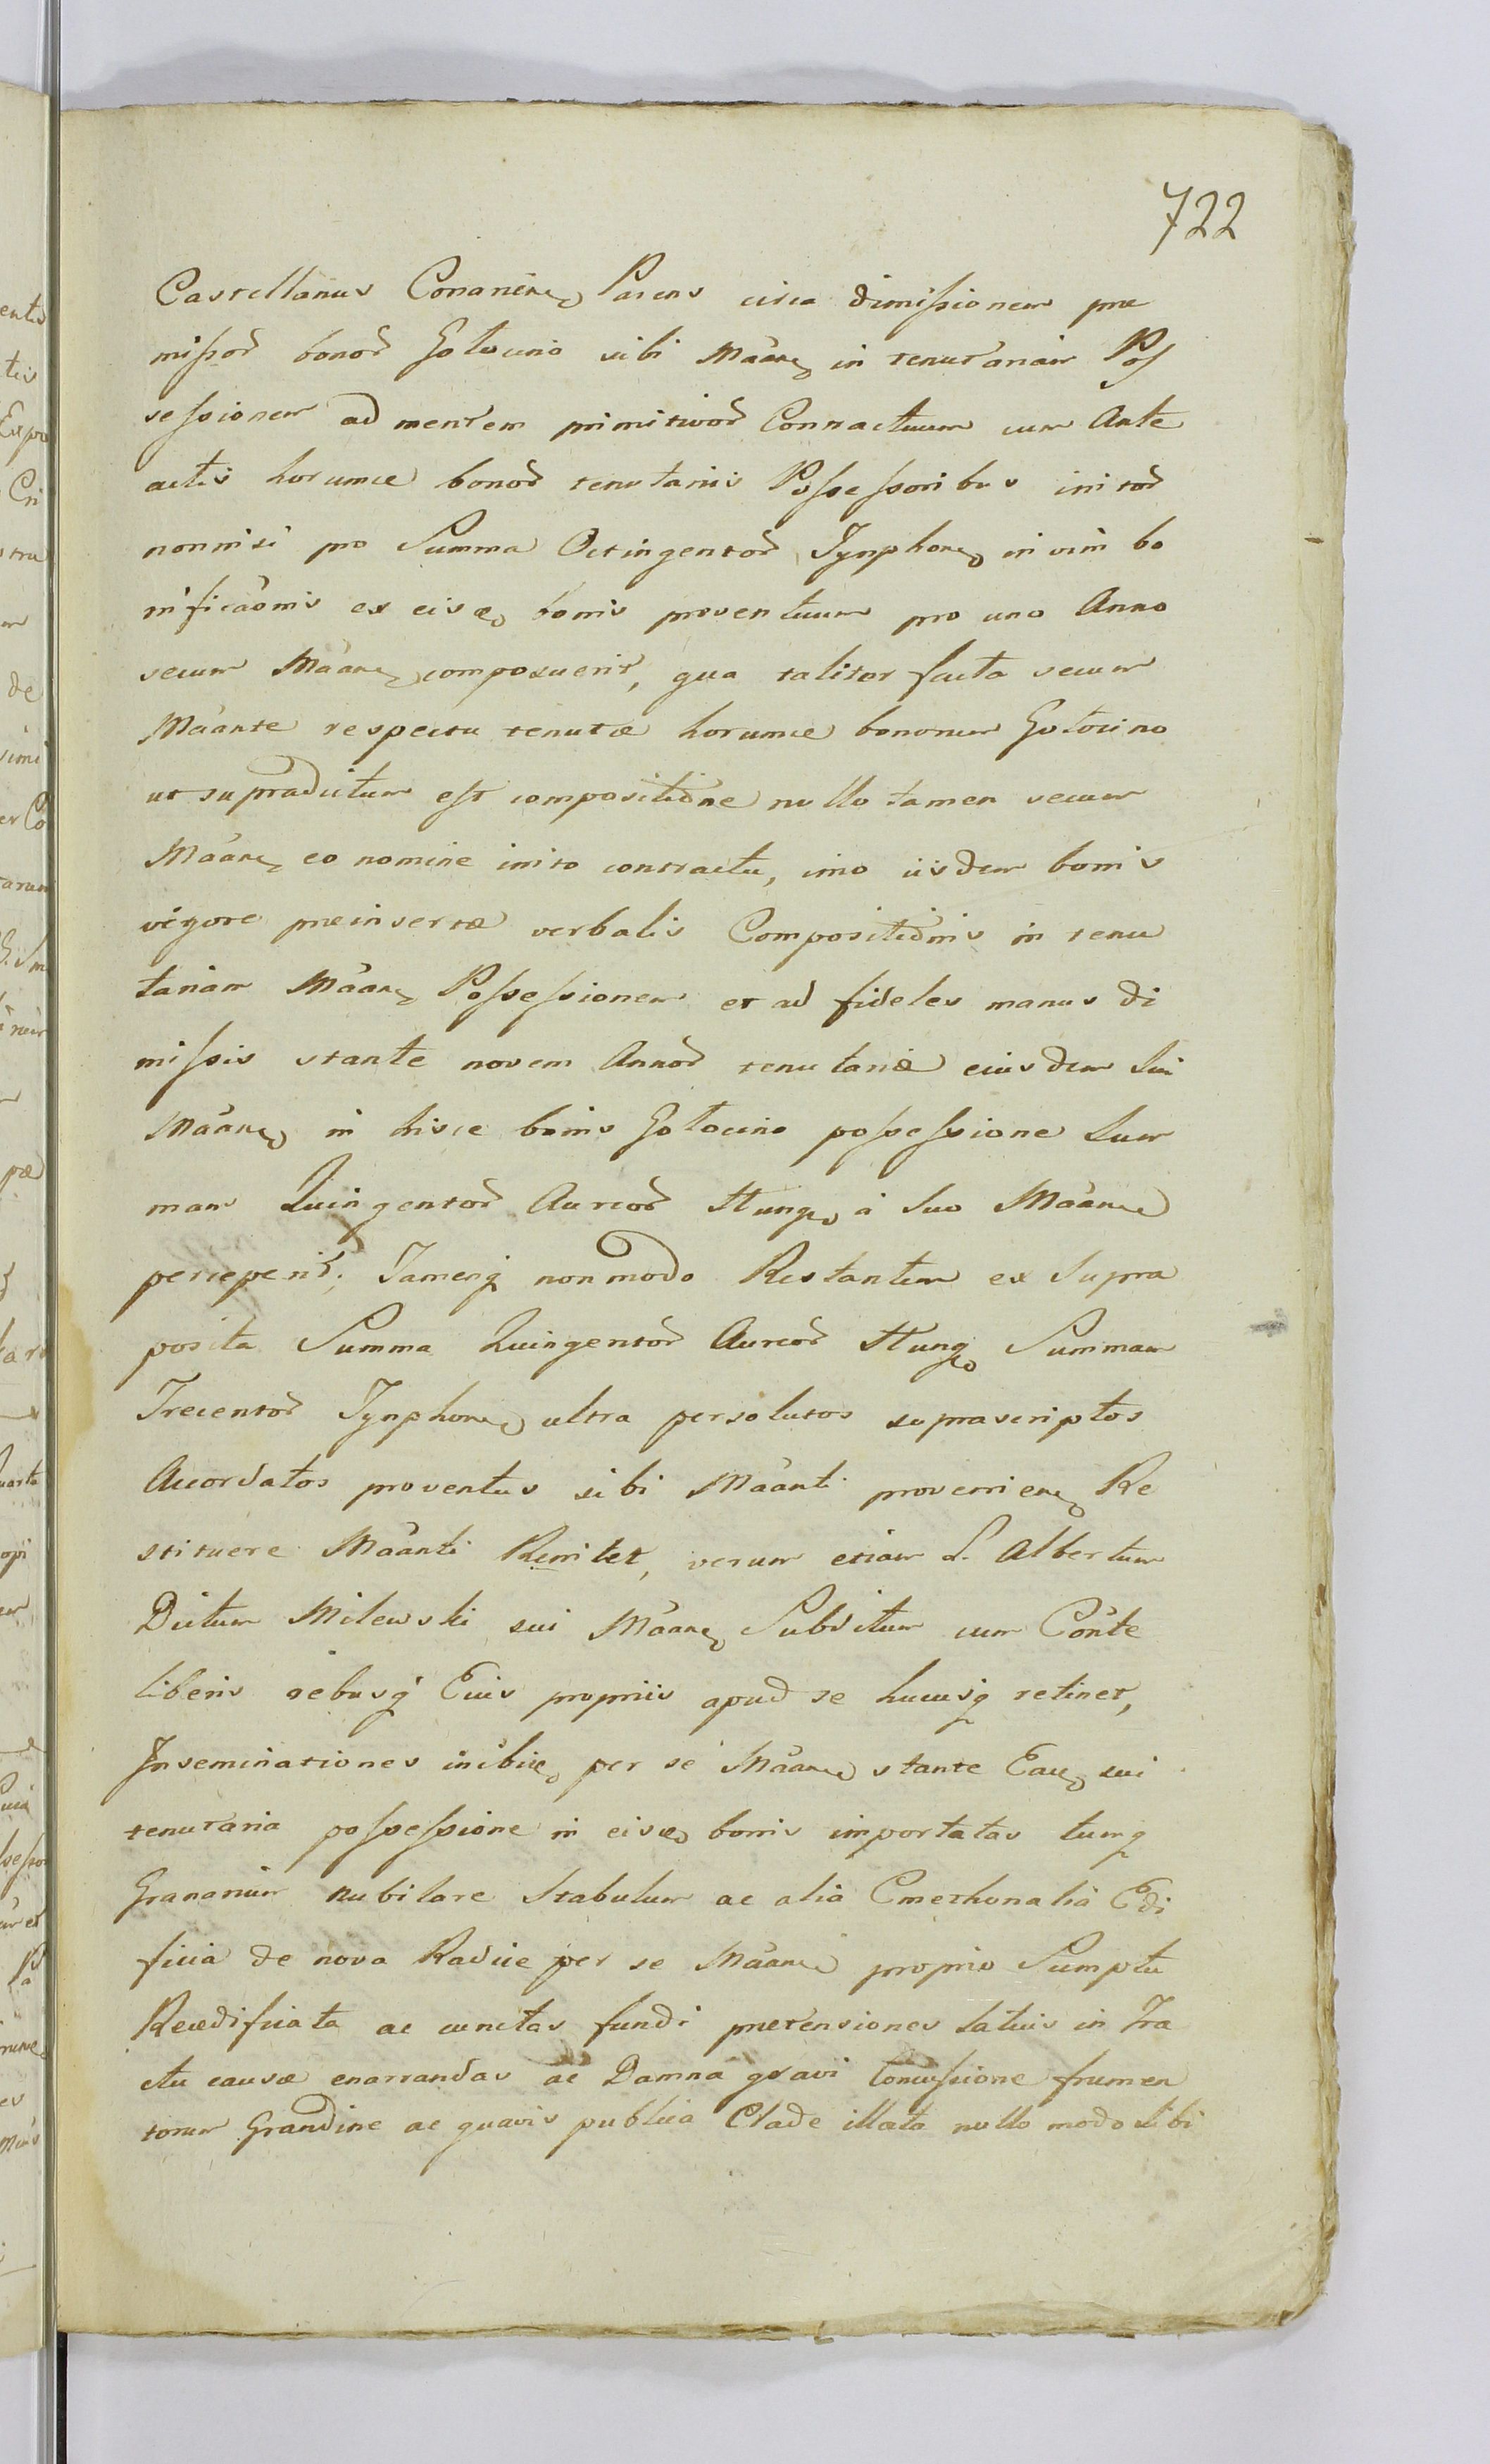 722
Castellanus Conarien Parens circa dimissionem præ
missor bonor Gotocino sibi Maãne in tenutariam Pos
sessionem ad mentem primitivor Contractuum cum Ante
actis horumce bonor tenutariis Possessoribus initor
nonnisi pro Summa Octingentor Tynphone in vim bo
nificãonis ex eisce bonis proventuum pro uno Anno
secum Maãne composuerit, qua taliter facta secum
Maãnte respectu tenutæ horumce bonorum Gotocino
ut supradictum est compositiõne nullo tamen secum
Maãne eo nomine inito contractu, imo iisdem bonis
vigore præinsertæ verbalis Compositiõnis in tenu
tariam Maãne Possessionem et ad fideles manus di
missis stante novem Annor tenutaria eiusdem Sui
Maãne in hisce bonis Gotocino possessione Sum
mam Quingentor Aureor Hung à Suo Maãne
perceperit; Tamenq non modo Restantem ex Supra
posita Summa Quingentor Aureor Hung Summam
Trecentor Tynphone ultra persolutos suprascriptos
Accordatos proventus sibi Maãnti provenien Re
stituere Maãnti Renitet, verum etiam L. Albertum
Dictum Milewski sui Maãne Subditum cum Cõnte
liberis rebusq Eius propriis apud se hucusq retinet,
Inseminationes inibiq per se Maãne stante Eace sui
tenutaria possessione in eisce bonis importatas tumq
Granarium nubilare Stabulum ac alia Emethonalia Edi
ficia de nova Radice per se Maãne proprio Sumptu
Reædificata ac cunctas fundi prætensiones latius in Tra
ctu causæ enarrandas ac Damna gravi Concussione frumen
torum Grandine ac quavis publica Clade illata nullo modo Sibi